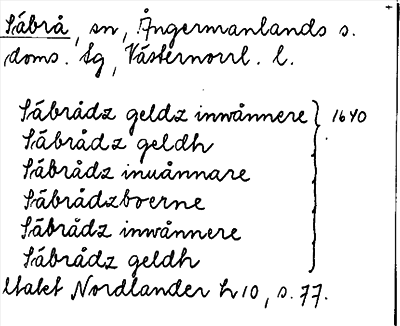 Säbrå, sn, Ångermanlands s.
doms. lg, Västernorrl. l.
Säbrådz geldz inwånnere } 1640
Säbrådz geldh
Säbrådz inuånnare
Säbrådzboerne
Säbrådz inwånnere
Säbrådz geldh
Utalet Nordlander h 10, s. 77.